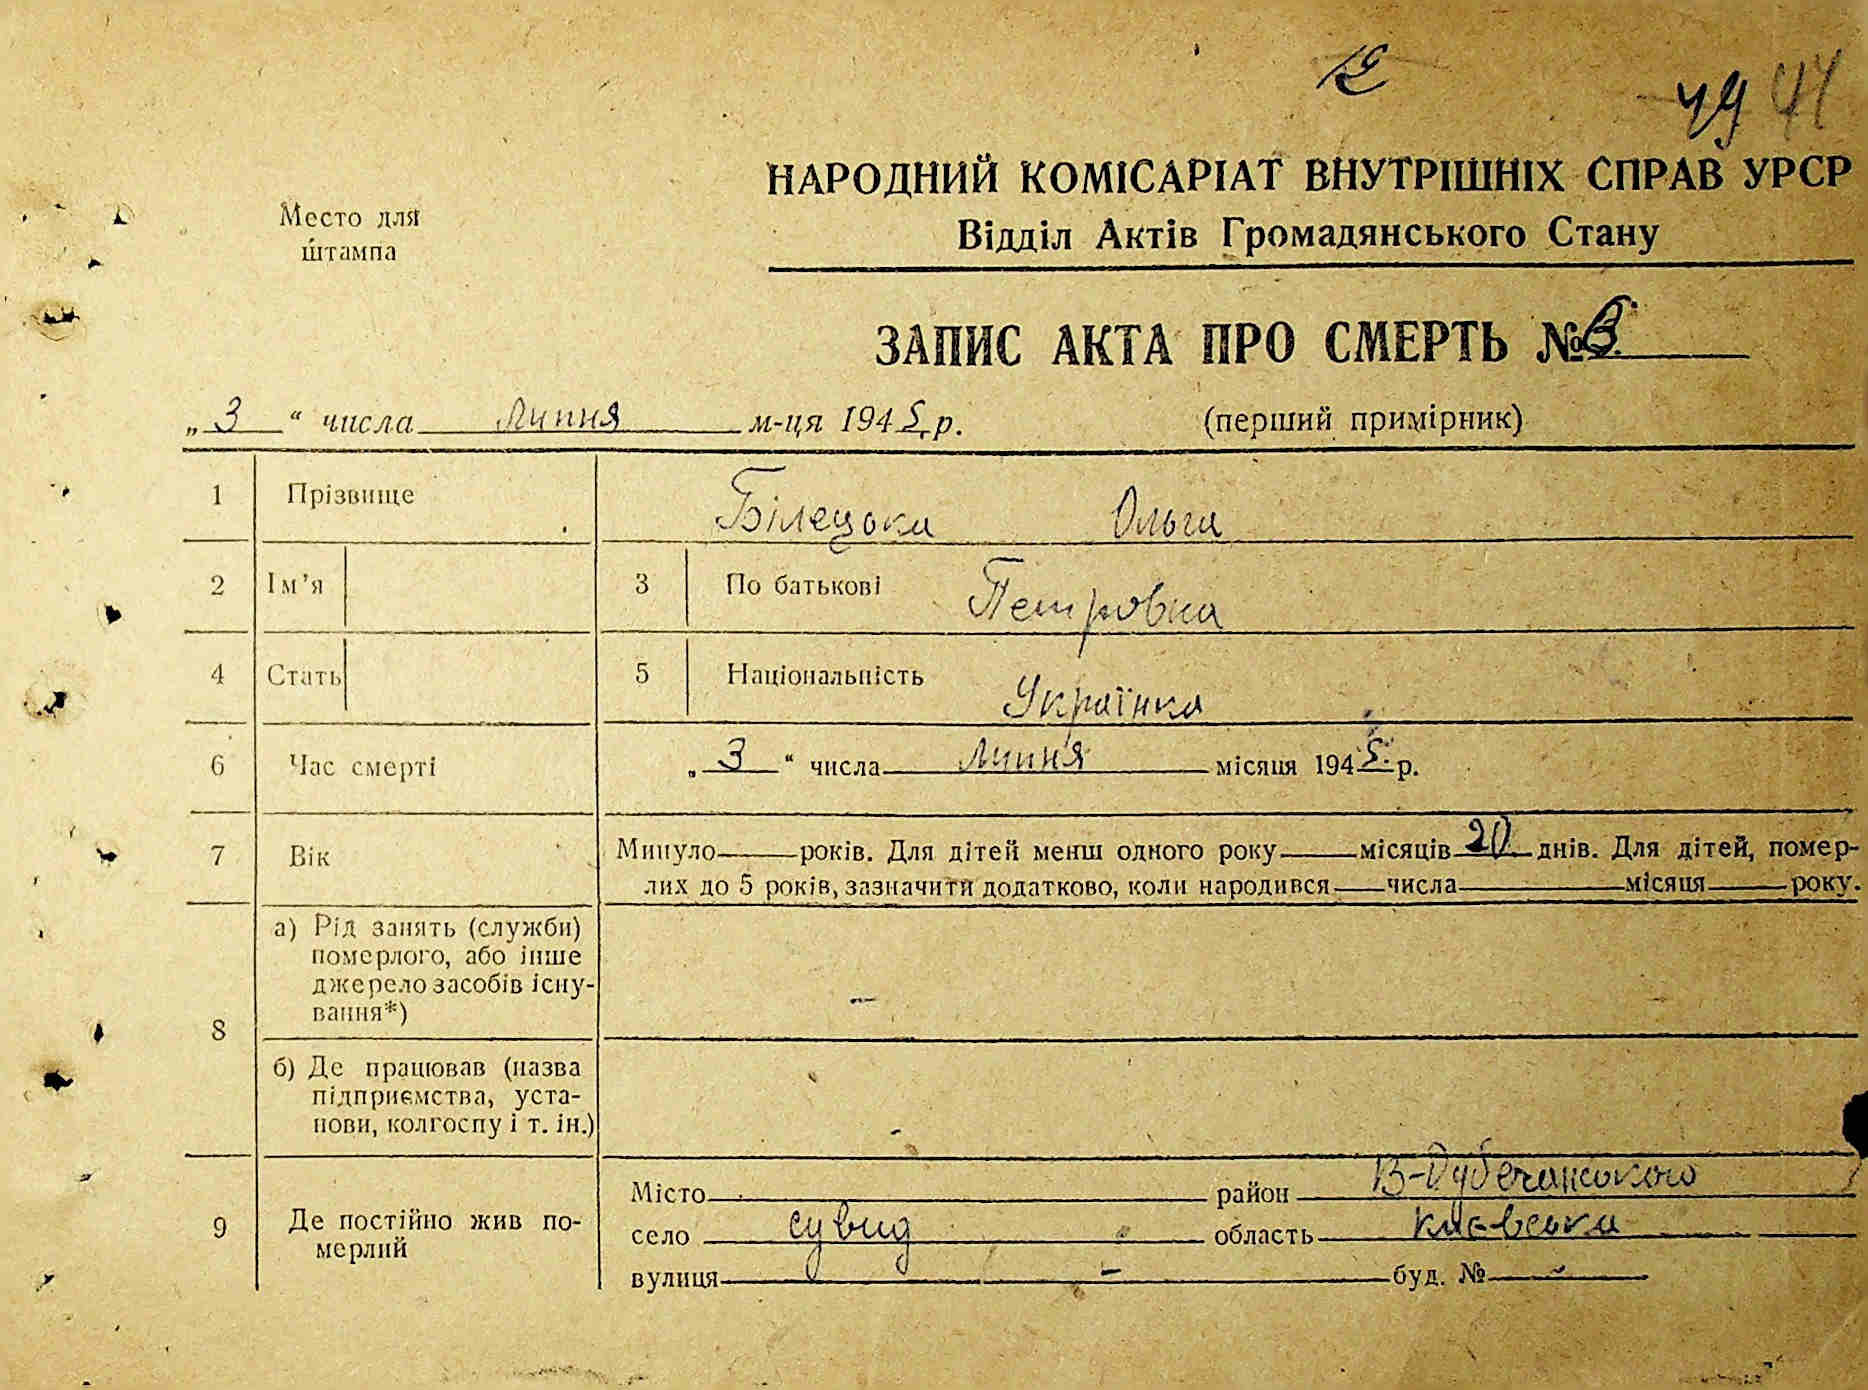 49 41
НАРОДНИЙ КОМІСАРІАТ ВНУТРІШНІХ СПРАВ УРСР
Відділ Актів Громадянського Стану
Место для
штампа
ЗАПИС АКТА ПРО СМЕРТЬ №
„ 3 “ числа липня м-ця 1945 р. (перший примірник)
1 Прізвище Білецька Ольга
2 Ім'я 3 По батькові Петровна
4 Стать 5 Національність Українка
6 Час смерті „ 3 “ числа липня місяця 1945 р.
7 Вік Минуло років. Для дітей менш одного року місяців 20 днів. Для дітей, помер-
лих до 5 років, зазначити додатково, коли народився числа місяця року.
8 а) Рід занять (служби)
померлого, або інше
джерело засобів існу-
вання*) –
б) Де працював (назва
підприємства, уста-
нови, колгоспу і т. ін.) -
9 Де постійно жив по-
мерлий
Місто район В-Дубечанського
село сувид область києвська
вулиця – буд. № -